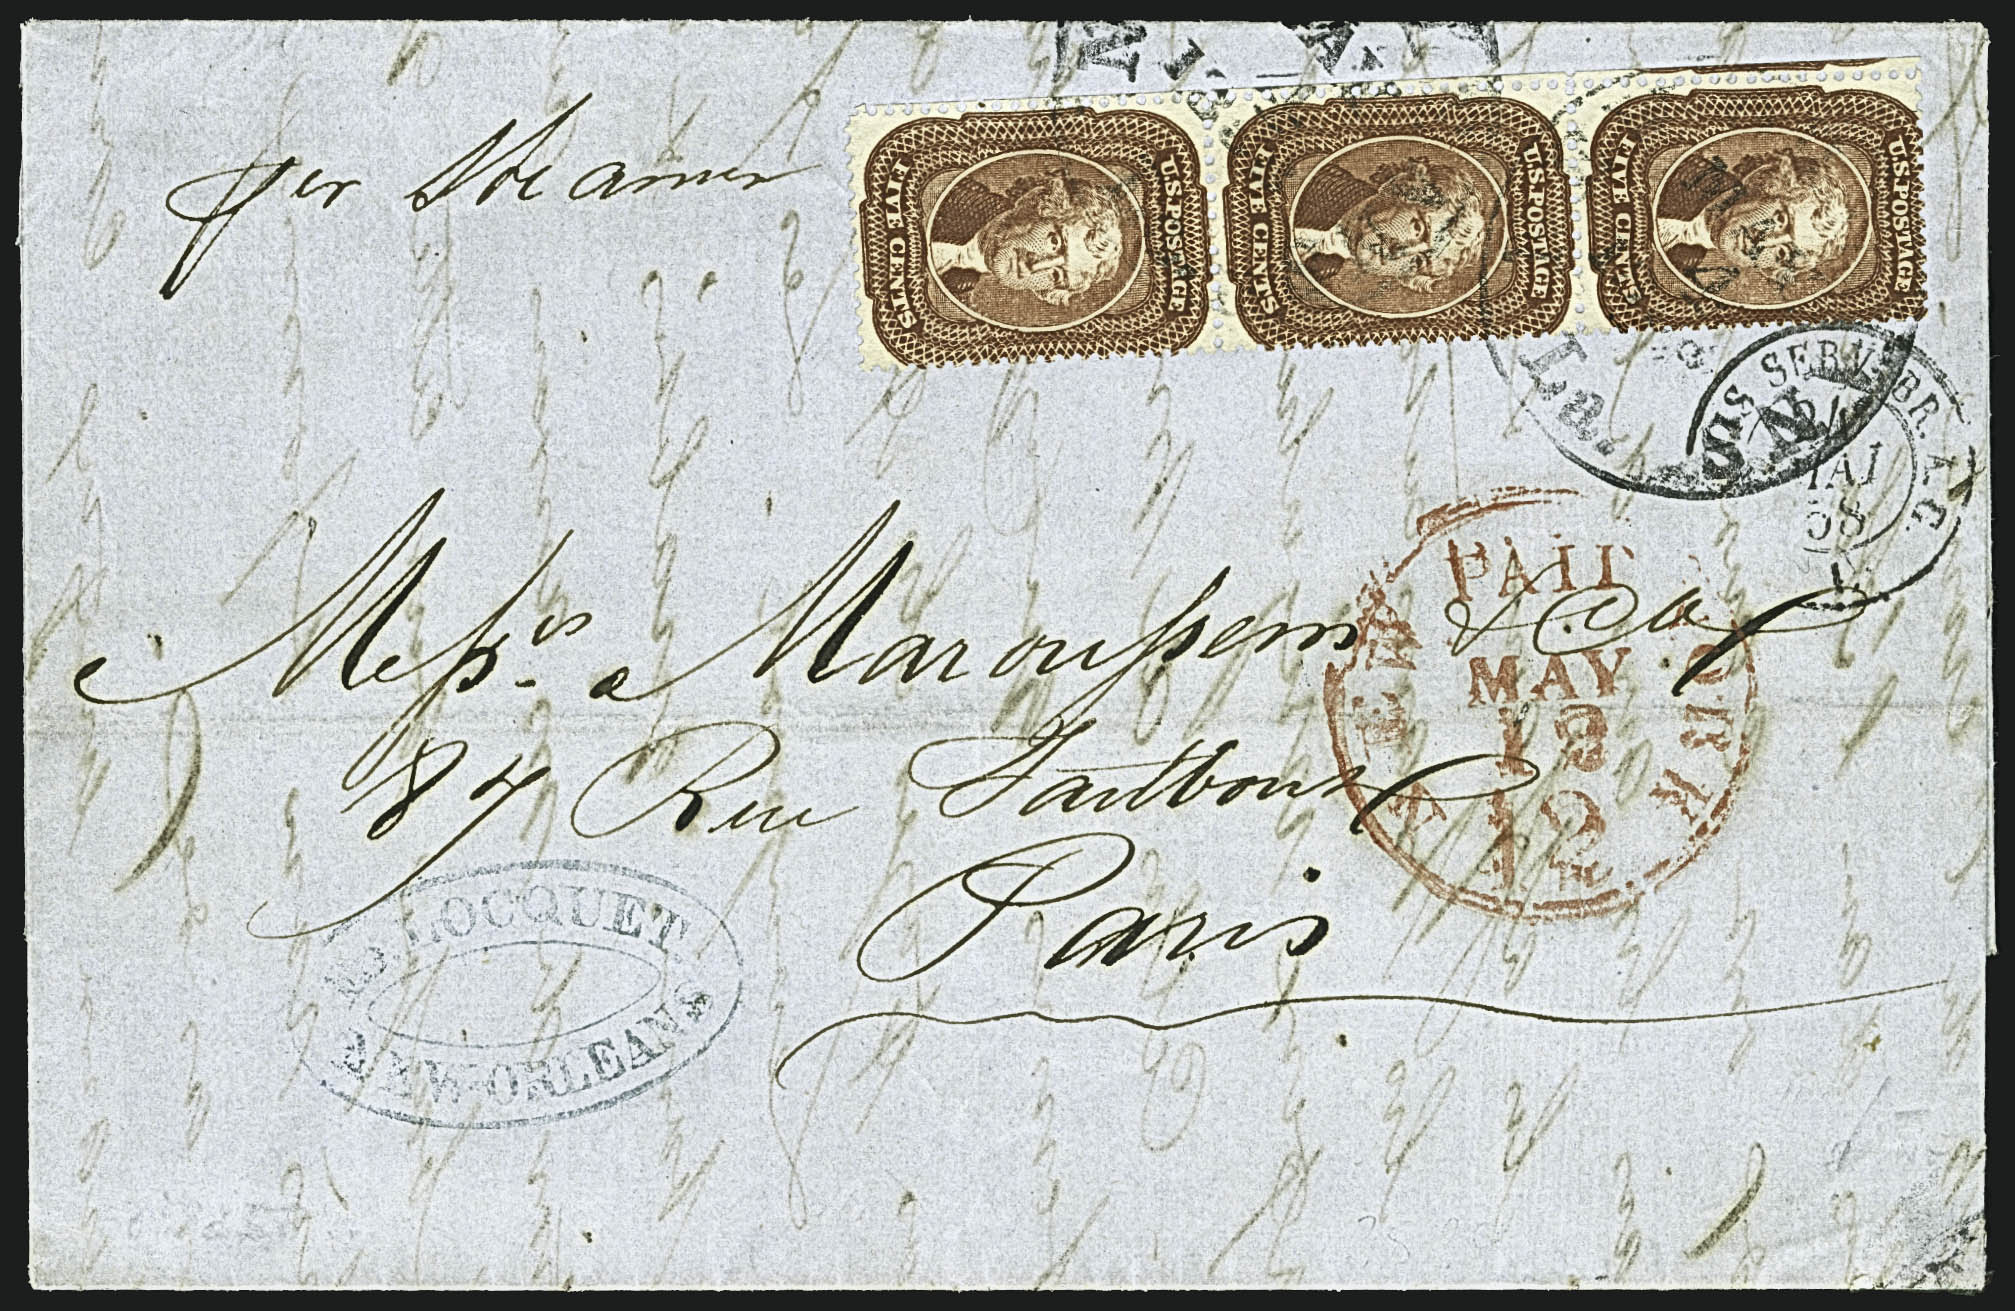 per Steamer
U.S. POSTAGE
FIVE CENTS
U.S. POSTAGE
FIVE CENTS
U.S. POSTAGE
FIVE CENTS
La.
SERV. BR. A.C.
MAI
58
Messrs. a Maroussem & Co
87 Rue Taitbout
Paris
PAID
MAY
18
12
NEW YORK
LOCQUET
NEW-ORLEANS